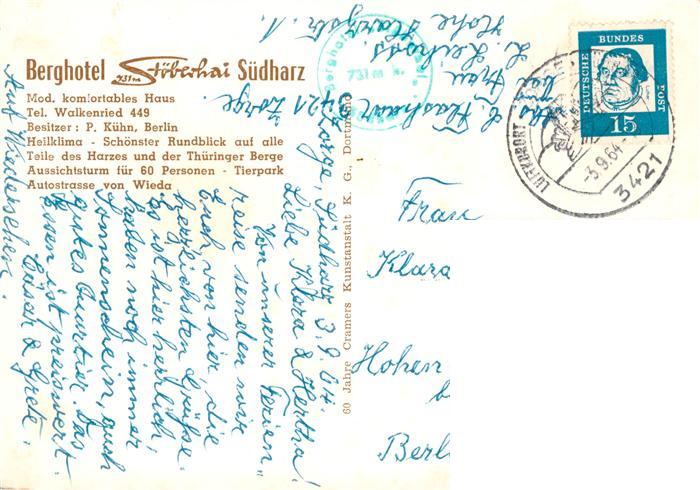 Berghotel Stöberhai Südharz
731 m
Mod. komfortables Haus
Tel. Walkenried 449
Besitzer : P. Kühn, Berlin
Heilklima - Schönster Rundblick auf alle
Teile des Harzes und der Thüringer Berge
Aussichtsturm für 60 Personen - Tierpark
Autostrasse von Wieda
Zorge, Südharz 3.9.64.
Liebe Klara & Hertha!
Von unserer Ferien„
reise senden wir
Euch von hier die
herzlichsten Grüße.
Es ist hier herrlich,
haben noch immer
Sonnenschein, auch
gutes Quartier. Das
Essen ist preiswert.
Cäsar & Grete.
Auf Wiedersehen.
60 Jahre Cramers Kunstanstalt K. G., Dortmund
bei
Frau
Hohe
3421 Zorge
731 m
DEUTSCHE BUNDES POST
15
LUFTKURORT
-3.9.64-
3421
Frau
Klara
Hohen
b
Berl